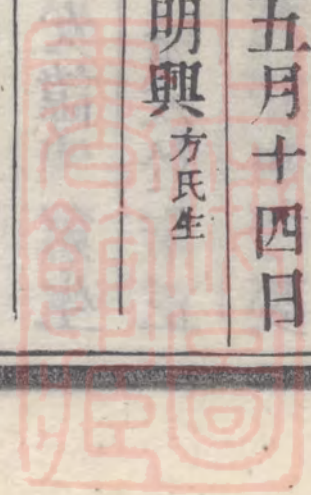 五月十四日
明興方氏生